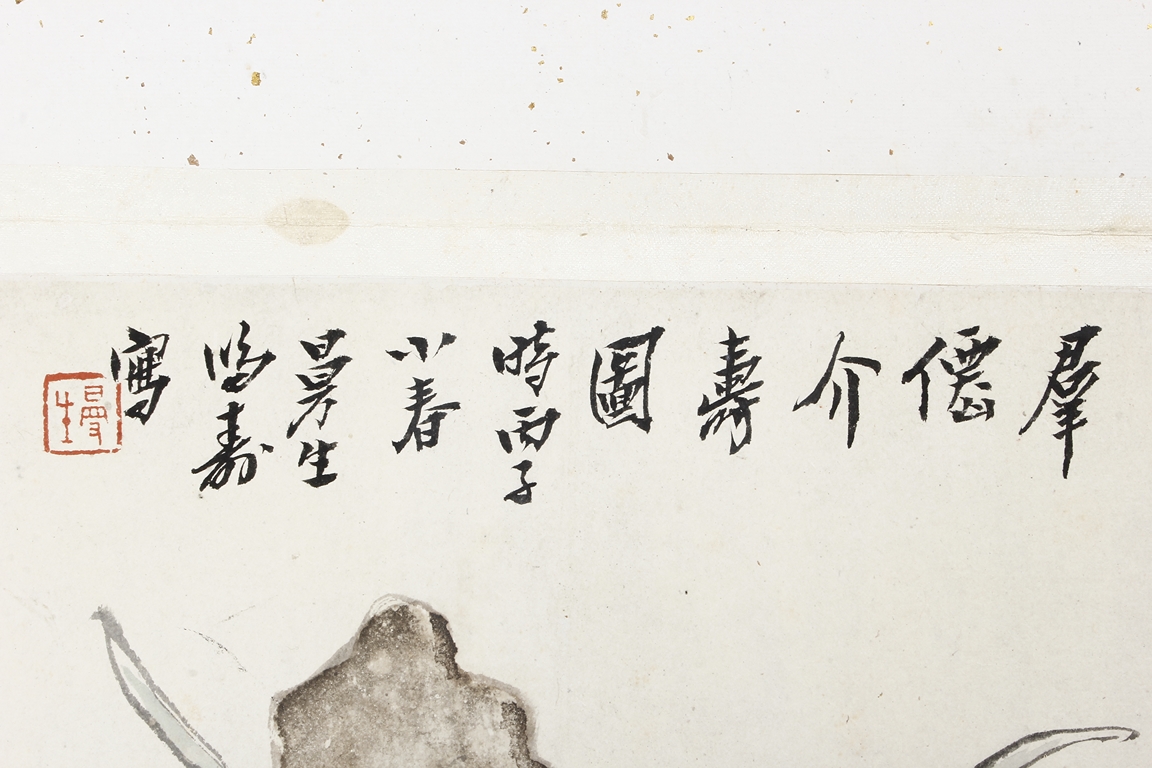 羣
僊
介
壽
圖
時丙子
小春
曼生
鴻壽
寫
曼生